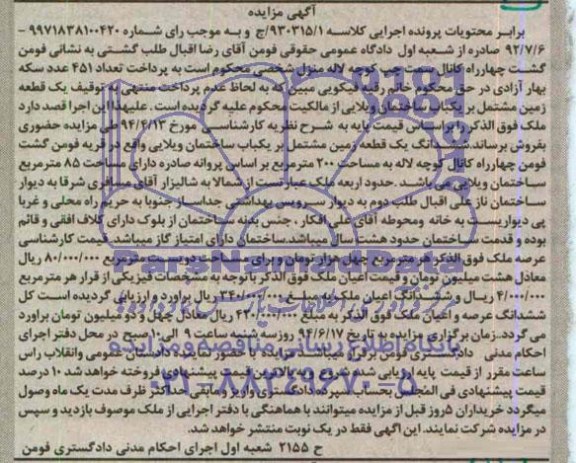 آگهی مزایده
برابر محتویات پرونده اجرایی کلاسه ۹۳۰۳۱۵/۱/ج و به موجب رای شماره ۹۹۷۱۸۳۸۱۰۰۴۲۰ –
۹۲/۷/۶ صادره از شعبه اول دادگاه عمومی حقوقی فومن آقای رضا اقبال طلب گشتی به نشانی فومن
گشت چهارراه کانال سمت چپ کوچه لاله منزل شخصی محکوم است به پرداخت تعداد ۴۵۱ عدد سکه
بهار آزادی در حق محکوم خانم رقیه فیکویی مبین که به لحاظ عدم پرداخت منتهی به توقیف یک قطعه
زمین مشتمل بر یکباب ساختمان ویلایی از مالکیت محکوم علیه گردیده است. علیهذا این اجرا قصد دارد
ملک فوق الذکر را براساس قیمت پایه به شرح نظریه کارشناسی مورخ ۹۴/۴/۱۳ طی مزایده حضوری
بفروش برساند. ششدانگ یک قطعه زمین مشتمل بر یکباب ساختمان ویلایی واقع در قریه فومن گشت
فومن چهارراه کانال کوچه لاله به مساحت ۲۰۰ مترمربع بر اساس پروانه صادره دارای مساحت ۸۵ مترمربع
ساختمان ویلایی می باشد. حدود اربعه ملک عبارتست از شمالا به شالیزار آقای مسافری شرقا به دیوار
ساختمان ناز علی اقبال طلب دوم به دیوار سرویس بهداشتی جداساز جنوبا به حریم راه محلی و غربا
پی دیواریست به خانه ومحوطه آقای علی افکار، جنس بدنه ساختمان از بلوک دارای کلاف افقی و قائم
بوده و قدمت ساختمان حدود هشت سال میباشد ساختمان دارای امتیاز گاز میباشد. قیمت کارشناسی
عرصه ملک فوق الذکر هر مترمربع چهل هزار تومان و برای مساحت دویست مترمربع ۸۰/۰۰۰/۰۰۰ ریال
معادل هشت میلیون تومان و قیمت اعیان ملک فوق الذکر باتوجه به مشخصات فیزیکی از قرار هر مترمربع
۴/۰۰۰/۰۰۰ ریال و ششدانگ اعیان ملک به مبلغ ۳۴۰/۰۰۰/۰۰۰ ریال براورد و ارزیابی گردیده است کل
ششدانگ عرصه و اعیان ملک فوق الذکر به مبلغ ۴۲۰/۰۰۰/۰۰۰ ریال معادل چهل و دو میلیون تومان براورد
می گردد. زمان برگزاری مزایده به تاریخ ۹۴/۶/۱۷ روز سه شنبه ساعت ۹ الی ۱۰ صبح در محل دفتر اجرای
احکام مدنی دادگستری فومن برقرار میباشد مزایده با حضور نماینده دادستان عمومی وانقلاب راس
ساعت مقرر از قیمت پایه ارزیابی شده شروع و به بالاترین قیمت پیشنهادی فروخته خواهد شد ۱۰ درصد
قیمت پیشنهادی فی المجلس بحساب سپرده دادگستری واویز و مابقی حداکثر ظرف مدت یک ماه وصول
میگردد خریداران ۵روز قبل از مزایده میتوانند با هماهنگی با دفتر اجرایی از ملک موصوف بازدید و سپس
در مزایده شرکت نمایند. این آگهی فقط در یک نوبت منتشر خواهد شد.
ح ۲۱۵۵ شعبه اول اجرای احکام مدنی دادگستری فومن
ParsNamadData
پایگاه اطلاع رسانی مناقصه و مزایده
۰۲۱-۸۸۳۴۹۶۷۰-۵